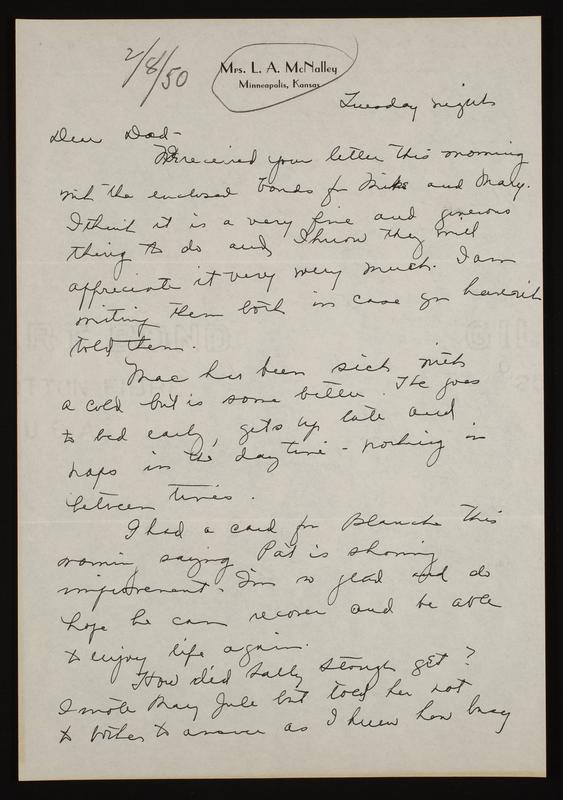 2/8/50
Mrs. L. A. McNalley
Minneapolis, Kansas
Tuesday night
Dear Dad-
We received your letter this morning
with the enclosed bonds for Mike and Mary.
I think it is a very fine and generous
thing to do and I know they will
appreciate it very very much. I am
writing them both in case you haven't
told them.
Mac has been sick with
a cold but is some better. He goes
to bed early, gets up late and
naps in the daytime - working in
between times.
I had a card from Blanche this
morning saying Pat is showing
improvement. I'm so glad and do
hope he can recover and be able
to enjoy life again.
How did Sally Stough get?
I wrote Mary Jule but told her not
to bother to answer as I knew how busy